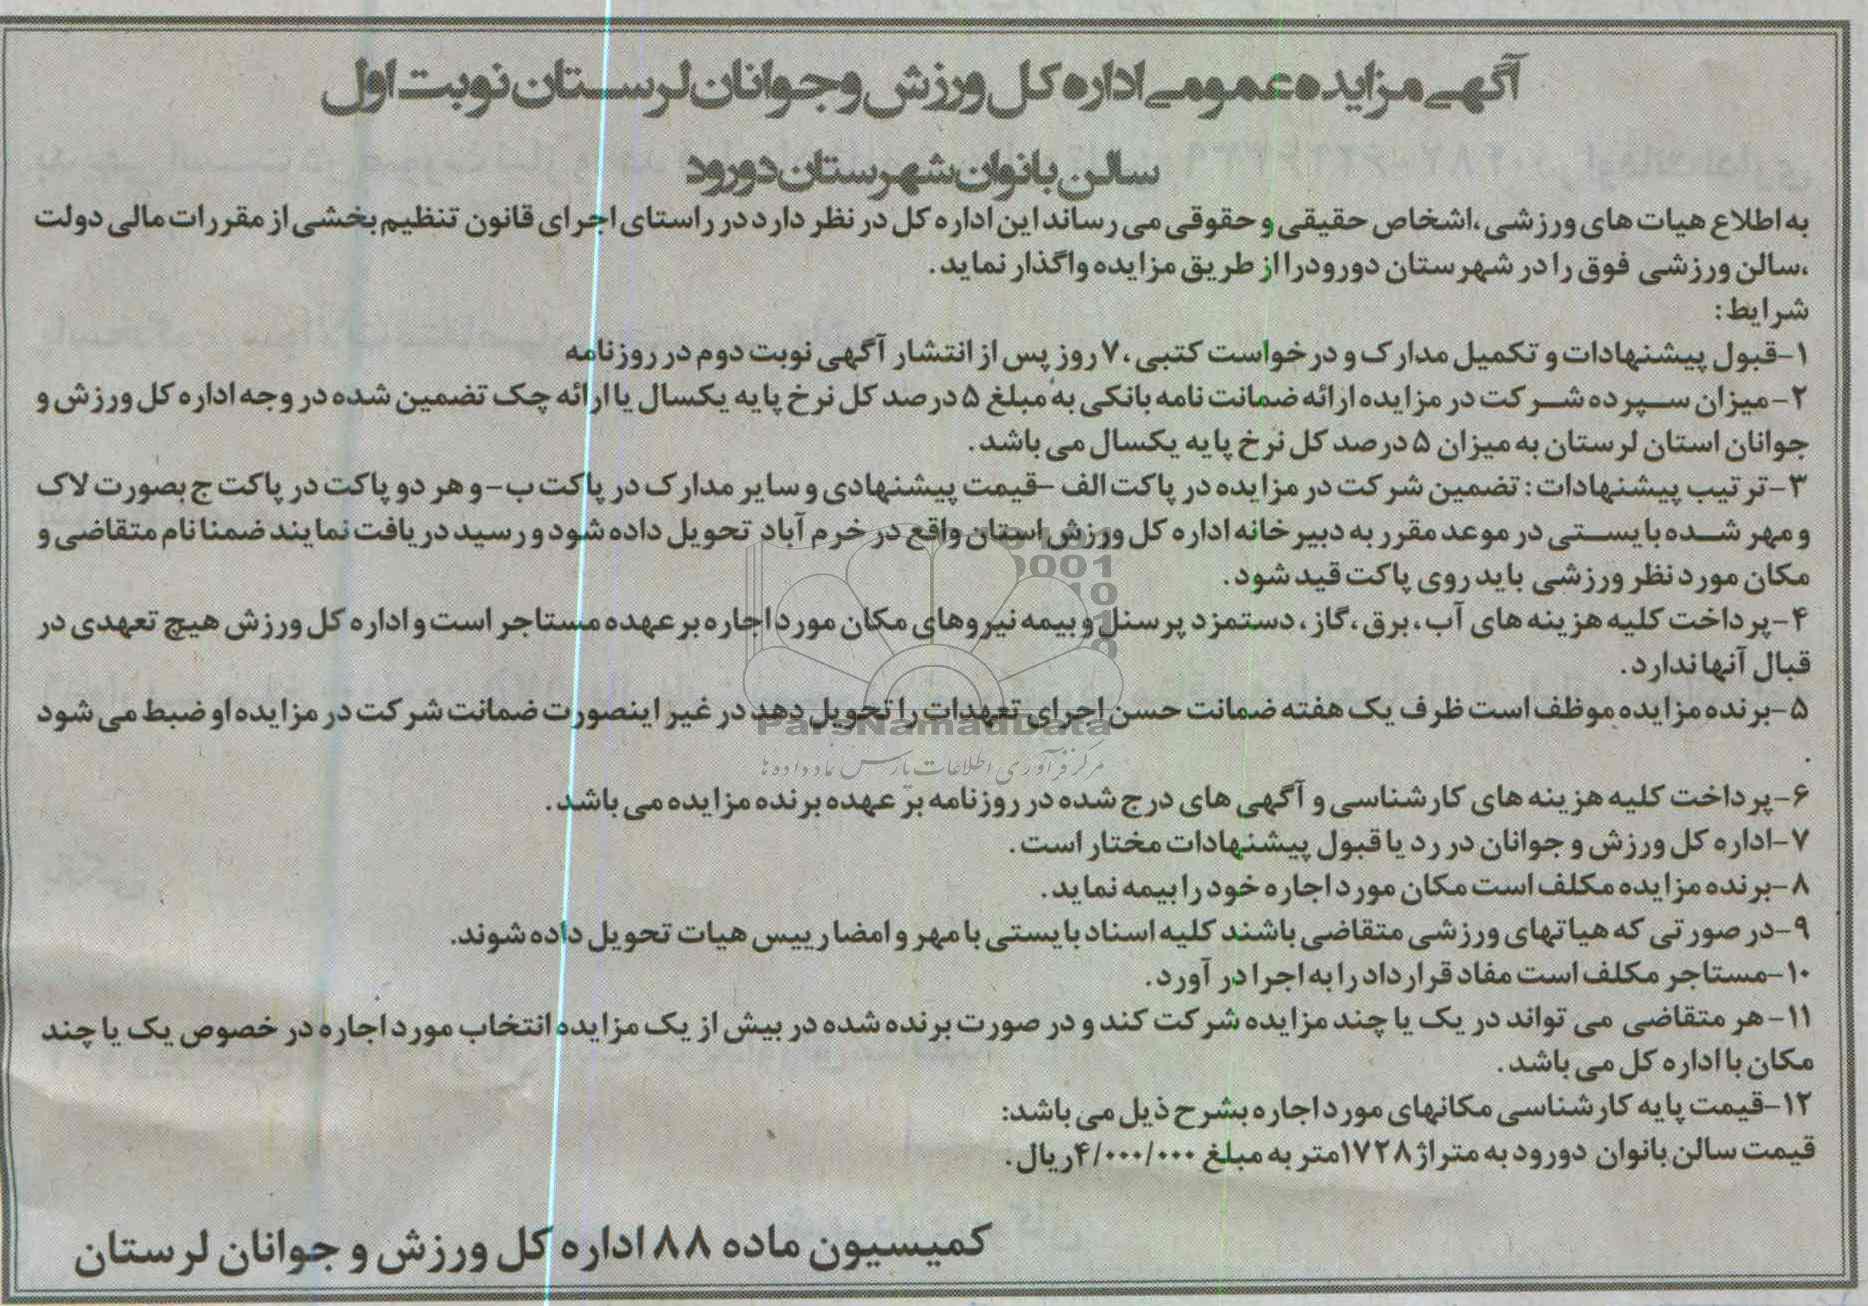 آگهی مزایده عمومی اداره کل ورزش و جوانان لرستان نوبت اول
سالن بانوان شهرستان دورود
به اطلاع هیات های ورزشی ،اشخاص حقیقی و حقوقی می رساند این اداره کل در نظر دارد در راستای اجرای قانون تنظیم بخشی از مقررات مالی دولت
،سالن ورزشی فوق را در شهرستان دورود را از طریق مزایده واگذار نماید.
شرایط:
۱-قبول پیشنهادات و تکمیل مدارک و درخواست کتبی ،۷ روز پس از انتشار آگهی نوبت دوم در روزنامه
۲-میزان سپرده شرکت در مزایده ارائه ضمانت نامه بانکی به مبلغ ۵ درصد کل نرخ پایه یکسال یا ارائه چک تضمین شده در وجه اداره کل ورزش و
جوانان استان لرستان به میزان ۵ درصد کل نرخ پایه یکسال می باشد.
۳-ترتیب پیشنهادات: تضمین شرکت در مزایده در پاکت الف –قیمت پیشنهادی و سایر مدارک در پاکت ب- و هر دو پاکت در پاکت ج بصورت لاک
و مهر شده بایستی در موعد مقرر به دبیرخانه اداره کل ورزش استان واقع در خرم آباد تحویل داده شود و رسید دریافت نمایند ضمنا نام متقاضی و
مکان مورد نظر ورزشی باید روی پاکت قید شود.
۴-پرداخت کلیه هزینه های آب، برق ،گاز، دستمزد پرسنل و بیمه نیروهای مکان مورد اجاره بر عهده مستاجر است و اداره کل ورزش هیچ تعهدی در
قبال آنها ندارد.
۵-برنده مزایده موظف است ظرف یک هفته ضمانت حسن اجرای تعهدات را تحویل دهد در غیر اینصورت ضمانت شرکت در مزایده او ضبط می شود
.
۶-پرداخت کلیه هزینه های کارشناسی و آگهی های درج شده در روزنامه بر عهده برنده مزایده می باشد.
۷-اداره کل ورزش و جوانان در رد یا قبول پیشنهادات مختار است.
۸-برنده مزایده مکلف است مکان مورد اجاره خود را بیمه نماید.
۹-در صورتی که هیاتهای ورزشی متقاضی باشند کلیه اسناد بایستی با مهر و امضا رییس هیات تحویل داده شوند.
۱۰-مستاجر مکلف است مفاد قرارداد را به اجرا در آورد.
۱۱- هر متقاضی می تواند در یک یا چند مزایده شرکت کند و در صورت برنده شده در بیش از یک مزایده انتخاب مورد اجاره در خصوص یک یا چند
مکان با اداره کل می باشد.
۱۲-قیمت پایه کارشناسی مکانهای مورد اجاره بشرح ذیل می باشد:
قیمت سالن بانوان دورود به متراژ ۱۷۲۸متر به مبلغ ۴/۰۰۰/۰۰۰ریال.
کمیسیون ماده ۸۸ اداره کل ورزش و جوانان لرستان
ParsNamadData
مرکز فرآوری اطلاعات پارس نماد داده ها